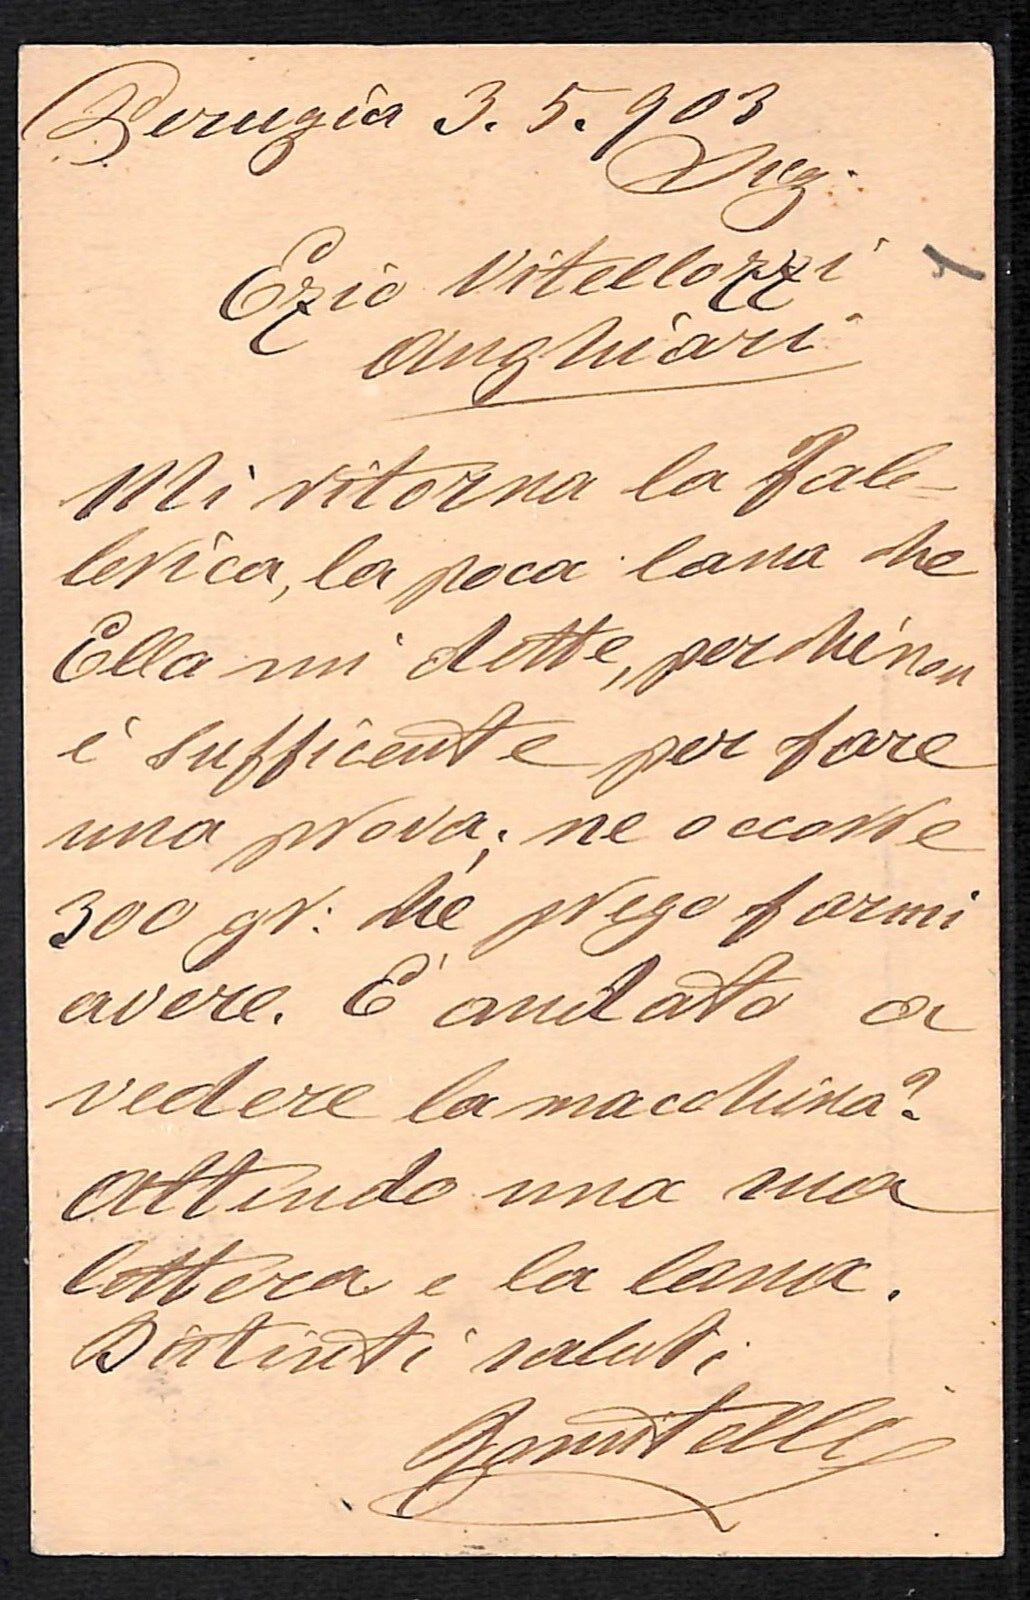 Perugia 3. 5. 903
Sig.
Ezio Vitellozzi
Anghiari
Mi ritorna la Fab-
brica, la poca lana che
Ella mi dette, perchè non
è sufficente per fare
una prova; ne occorre
300 gr: che prego farmi
avere. È andato a
vedere la macchina?
Attendo una sua
lettera e la lana.
Distinti saluti